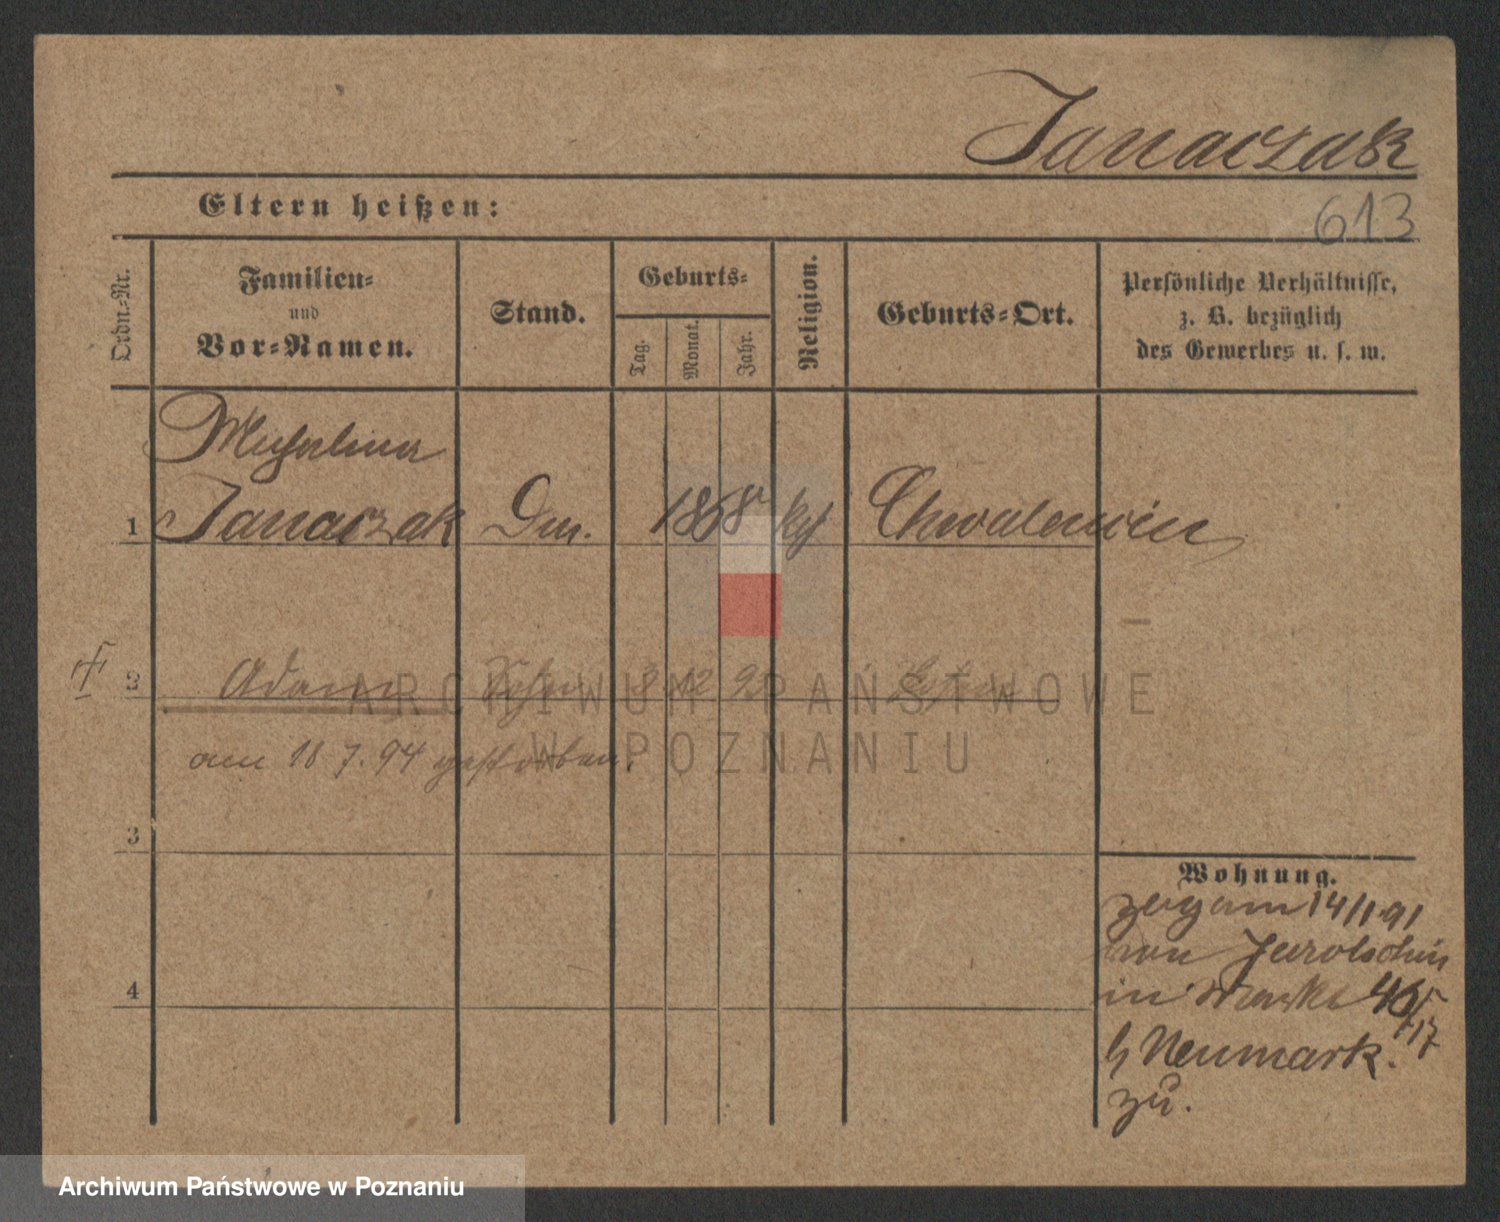 Janaczak
613
Eltern heißen:
Ordn.-Nr.
Familien-
und
Vor-Namen.
Stand.
Geburts-
Tag.
Monat.
Jahr.
Religion.
Geburts-Ort.
Persönliche Verhältnisse,
z. B. bezüglich
des Gewerbes u. s. w.
Michalina
1 Janaczak 1868 Kt
2 Adam 3 12
am 18 7. 94 gestorben.
3
4
Wohnung.
zog am 14/1 91
von Jarotschin
in
b Neumark.
zu.
ARCHIWUM PAŃSTWOWE
W POZNANIU
Archiwum Państwowe w Poznaniu